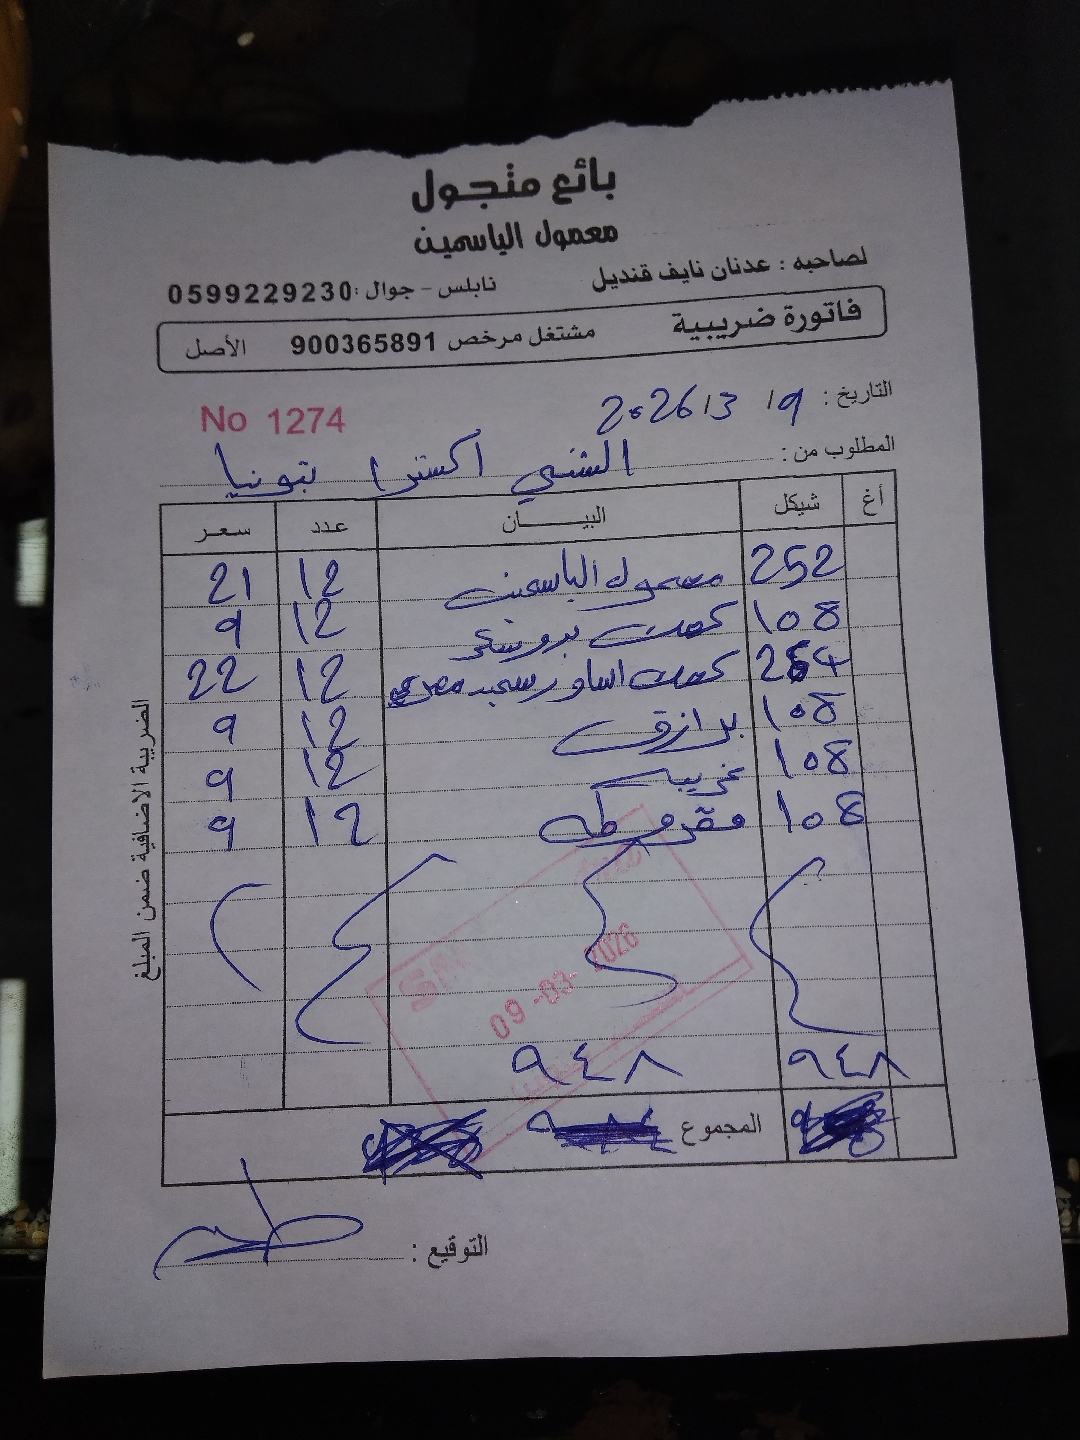 بائع متجول
معمول الياسمين
لصاحبه : عدنان نايف قنديل
نابلس - جوال : 0599229230
فاتورة ضريبية مشتغل مرخص 900365891 الأصل
التاريخ : 9 / 3 / 2026
No 1274
المطلوب من : الشني اكسترا بتونيا
أغ شيكل البيـــــان عدد سعر
252 معمول الياسمين 12 21
108 كعك 12 9
264 كعك اساور سميد مصري 12 22
108 برازق 12 9
108 غريبه 12 9
108 مقروطه 12 9
09 -03- 2026
٩٤٨ ٩٤٨
المجموع
التوقيع :
الضريبة الاضافية ضمن المبلغ